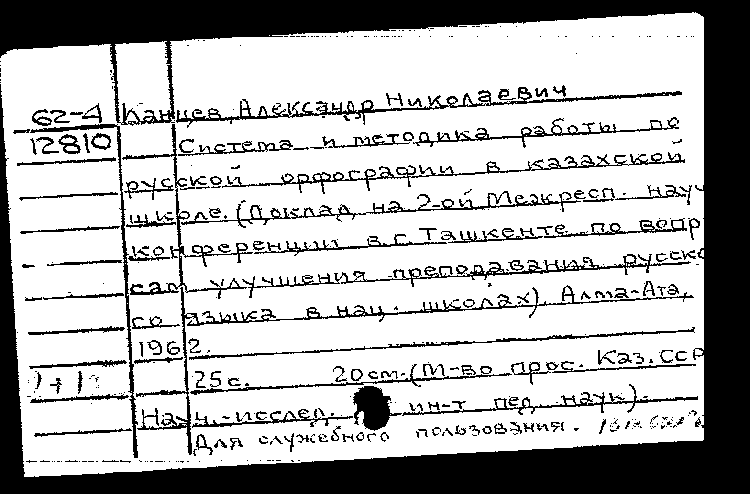 62-4 Канцев, Александр Николаевич
12810 Система и методика работы по
русской орфографии в казахской
школе. (Доклад на 2-ой Межресп. науч
конференции в г. Ташкенте по вопр
сам улучшения преподавания русско
го языка в нац. школах). Алма-Ата,
1962.
25 с. 20 см. (М-во прос. Каз. ССР
Науч.-исслед. ин-т пед. наук).
Для служебного пользования.